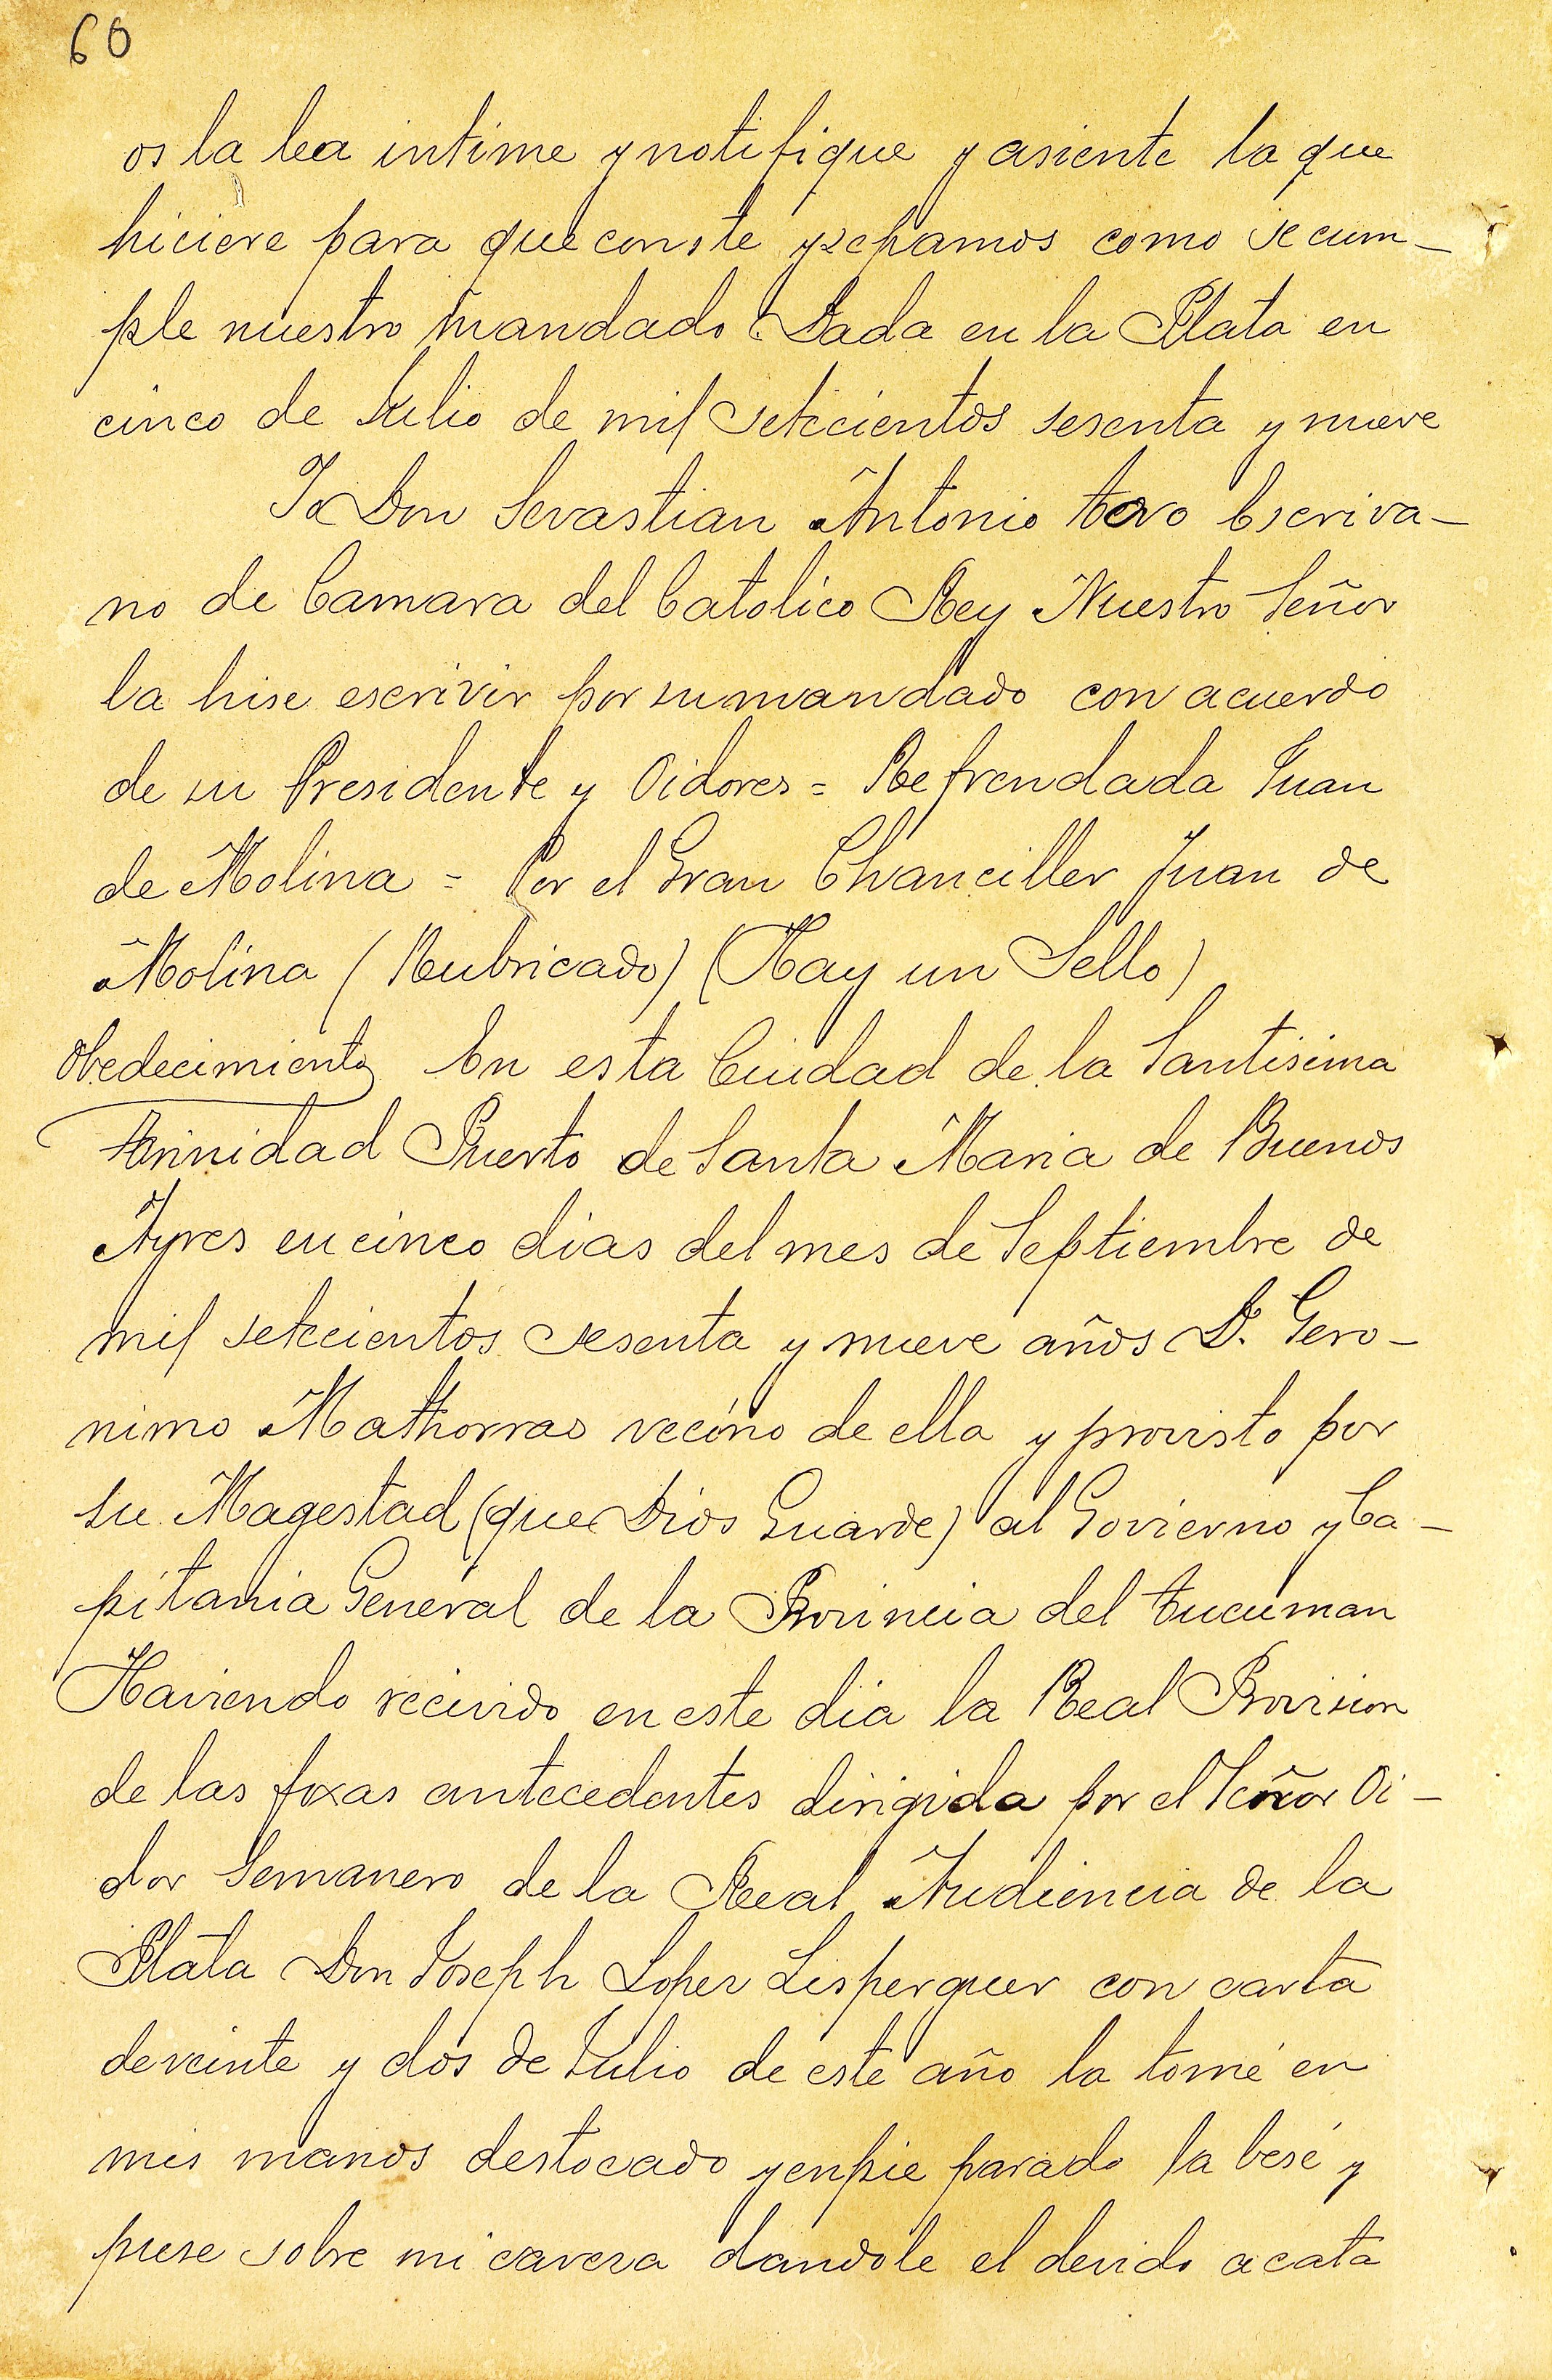 60
os la lea intime y notifique y asiente la que
hiciere para que conste y sepamos como se cum-
ple nuestro mandado Dada en la Plata en
cinco de Julio de mil setecientos sesenta y nueve
Yo Don Sevastian Antonio toro Escriva-
no de Camara del Catolico Rey Nuestro Señor
la hise escrivir por su mandado con acuerdo
de su Presidente y Oidores = Refrendada Juan
de Molina = Por el Gran Chanciller Juan de
Molina (Rubricado) (Hay un Sello)
Obedecimiento En esta Ciudad de la Santisima
trinidad Puerto de Santa Maria de Buenos
Ayres en cinco dias del mes de Septiembre de
mil setecientos sesenta y nueve años D. Gero-
nimo Mathorras vecino de ella y provisto por
su Magestad (que Dios Guarde) al Govierno y Ca-
pitania General de la Provincia del tucuman
Haviendo recivido en este dia la Real Provision
de las foxas antecedentes dirigida por el Señor Oi-
dor Semanero de la Real Audiencia de la
Plata Don Joseph Lopez Lisperguer con carta
de veinte y dos de Julio de este año la tomé en
mis manos destocado y en pie parado la besé y
puse sobre mi caveza dandole el devido acata